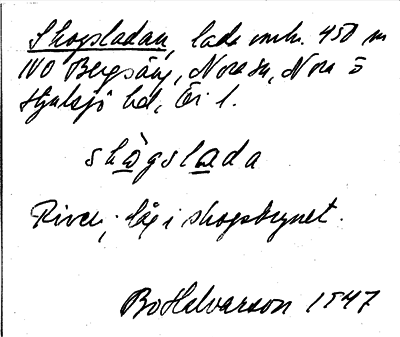 Skogsladan, lada omkr. 450 m
NO Bergsäng, Nora sn, Nora o
Hjulsjö hd, Ör l.
skògslada
Riven; låg i skogsbrynet.
Bo Halvarson 1947